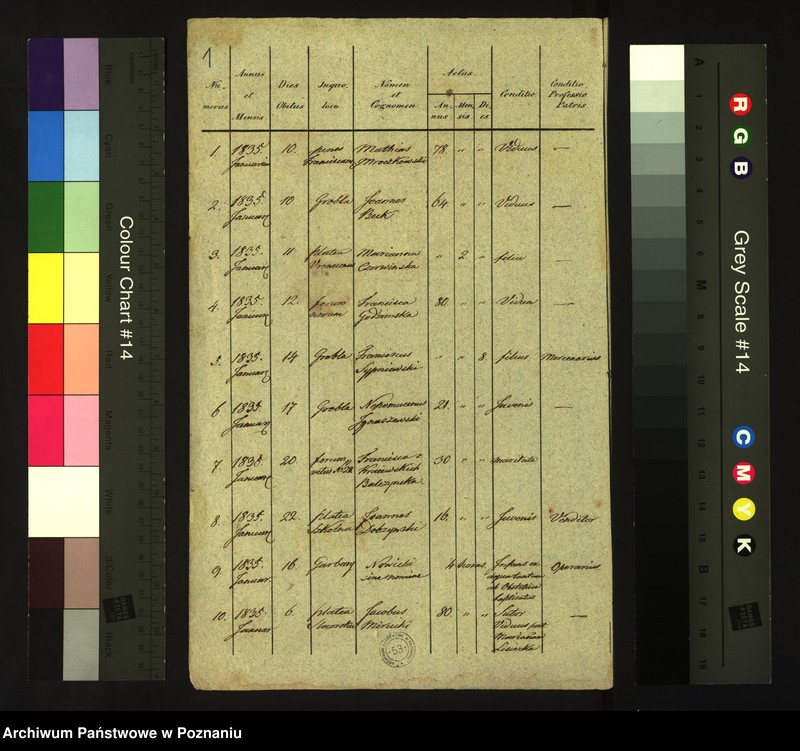 1
Nu-merus.
Annus et Mensis
Dies Obitus
In quo loco
Nomen et Cognomen
Aetas
An-nus. Men-sis Di-es
Conditio
Conditio Professio Patris
1. 1835. 10. penes Mathias 78. " " Viduus —
Januarii Franciscan Mroczkowski
2. 1835. 10 Grobla Joannes 64. " " Viduus —
Januar Beck
3. 1835. 11 platea Marianna " 2. " filia —
Januar Czerwinska
4. 1835. 12. forum Francisca 80 " " Vidua —
Januar novum
5. 1835. 14 Grobla Franciscus " " 8. filius Mercenarius
Januar Sypniewski
6. 1835. 17 Grobla Nepomucenus 21. " " Juvenis —
Januar Ignaszewski
7. 1835. 20. forum Francisca 30 " " maritata
Januar vetus No
8. 1835. 22. platea Joannes 16. " " Juvenis Venditor
Januar szkolna Dobrzynski
9. 1835. 16. Garbary Nowicki 4 horas Infans ex Operarius
Januar. sine nomine
ab Obstetrice
baptisatus
10. 1835. 6. platea Jacobus 80. " " Sutor —
Januar
Viduus post
Marianna
53
Colour Chart #14
Blue
Cyan
Green
Yellow
Red
Magenta
White
3/Color
Black
Grey Scale #14
R
G
B
C
M
Y
K
A
1
2
3
4
5
6
M
8
9
10
11
12
13
14
15
B
17
18
19
Archiwum Państwowe w Poznaniu